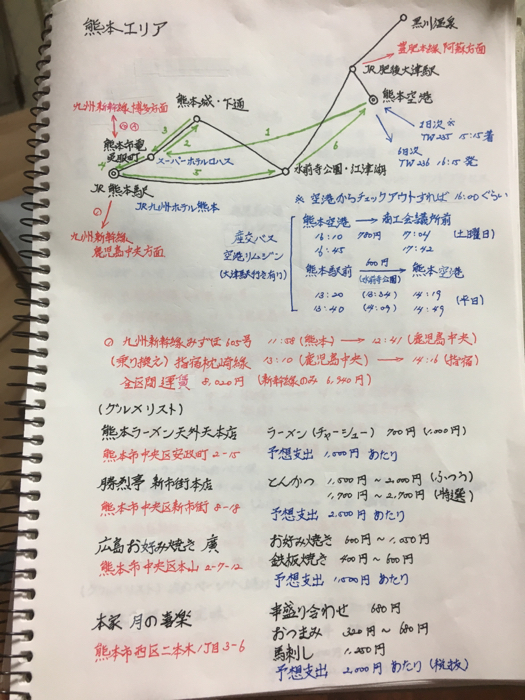 熊本エリア
黒川温泉
豊肥本線,阿蘇方面
JR肥後大津駅
熊本空港
九州新幹線,博多方面
熊本城・下通
熊本市電
スーパーホテルロハス
水前寺公園・江津湖
JR 熊本駅
JR九州ホテル熊本
九州新幹線
鹿児島中央方面
1
2
3
4
5
6
1日次 ※
TW235 15:15着
6日次
TW236 16:15発
※ 空港からチェックアウトすれば 16:00ぐらい
産交バス
空港リムジン
(大津駅行き有り)
熊本空港 → 商工会議所前
16:10 780円 17:04 (土曜日)
16:45 17:42
熊本駅前 600円 → 熊本空港
(水前寺公園)
13:20 (13:34) 14:19
13:40 (14:09) 14:49 (平日)
九州新幹線みずほ 605号 11:58 (熊本) → 12:41 (鹿児島中央)
(乗り換え) 指宿枕崎線 13:10 (鹿児島中央) → 14:16 (指宿)
全区間運賃 8,020円 (新幹線のみ 6,940円)
(グルメリスト)
熊本ラーメン天外天本店 ラーメン (チャーシュー) 700円 (1,000円)
熊本市中央区安政町 2-15 予想支出 1,000円 あたり
勝烈亭 新市街本店 とんかつ 1,500円 ~ 2,000円 (ふつう)
1,900円 ~ 2,700円 (特選)
熊本市中央区新市街 8-18
予想支出 2,500円 あたり
広島お好み焼き 廣 お好み焼き 600円 ~ 1,050円
熊本市中央区本山 2-7-12 鉄板焼き 400円 ~ 600円
予想支出 1,500円 あたり
本家 月の喜楽 串盛り合わせ 680円
おつまみ 320円 ~ 680円
熊本市西区二本木1丁目3-6 馬刺し 1,250円
予想支出 2,000円 あたり (税抜)